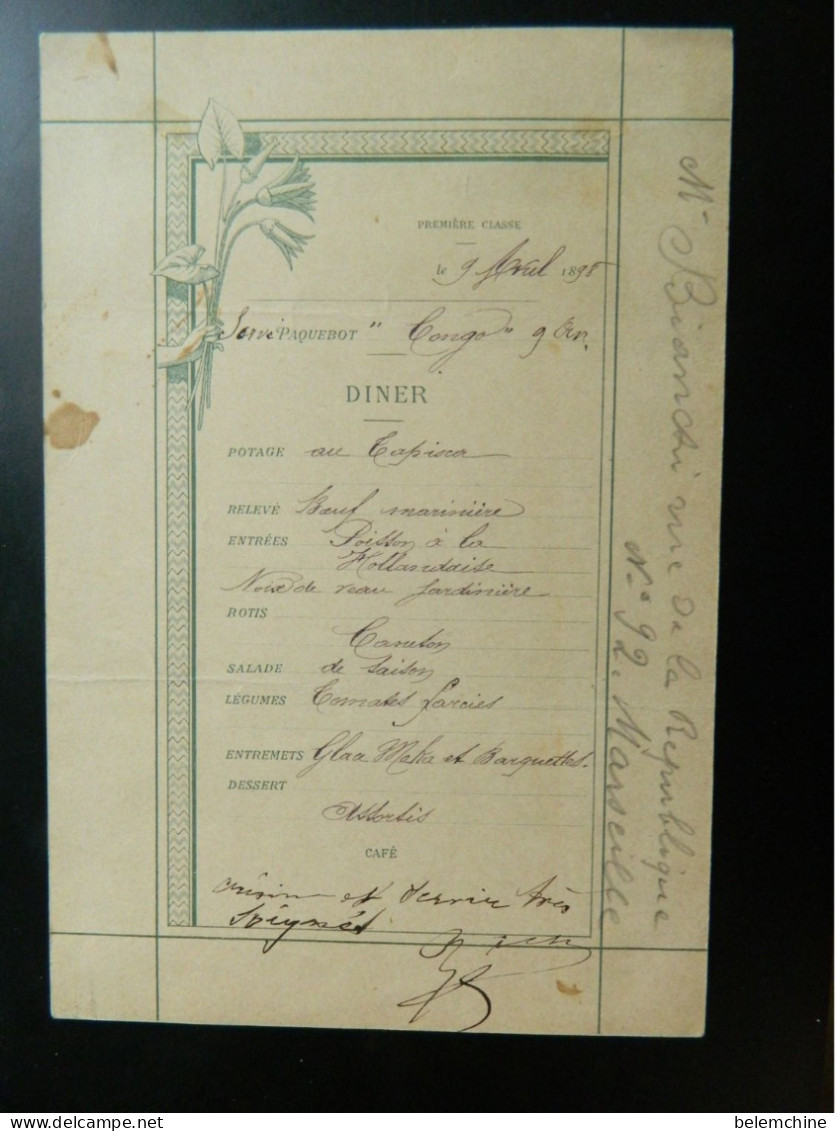 PREMIÈRE CLASSE
le 9 Avril 1898
PAQUEBOT " Congo" 9
DINER
POTAGE au Tapioca
RELEVÉ Bœuf marinière
ENTRÉES Poisson à la
Hollandaise
Noix de veau Jardinière
ROTIS
Caneton
SALADE de saison
LÉGUMES Tomates farcies
ENTREMETS Glace Moka et Barquettes.
DESSERT
Assortis
CAFÉ
cuisine et service très
soignés
Mr Bianchi rue De la Republique
No 92. Marseille
delcampe.net
belemchine